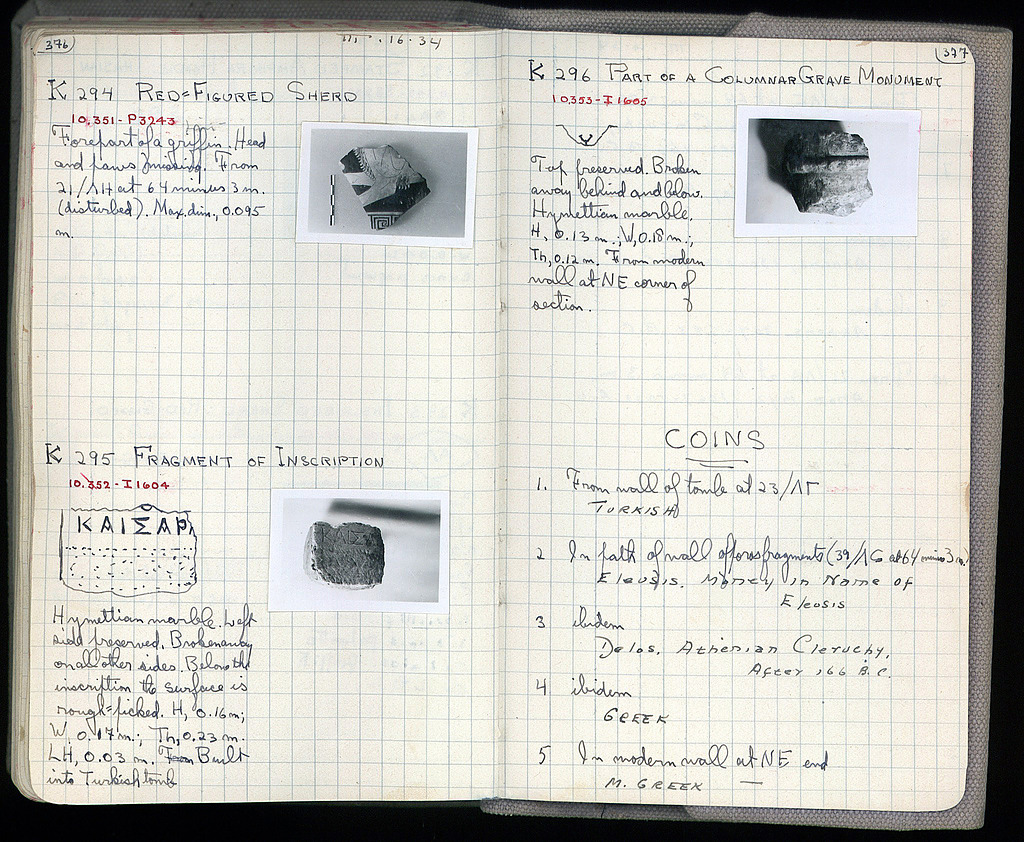 376
16·34
K 294 RED=FIGURED SHERD
10,351-P3243
Forepart of a griffin. Head
and paws missing. From
21/ΛΗ at 64 minus 3 m.
(disturbed). Max. dim., 0.095
m.
K 295 FRAGMENT OF INSCRIPTION
10.352-I1604
ΚΑΙΣΑΡ
Hymettian marble. Left
side preserved. Broken away
on all other sides. Below the
inscription the surface is
rough=picked. H, 0.16 m;
W, 0.17 m.; Th, 0.23 m.
LH, 0.03 m. From Built
into Turkish tomb
377
K 296 PART OF A COLUMNAR GRAVE MONUMENT
10,353-I1605
Top preserved. Broken
away behind and below.
Hymettian marble.
H, 0.13 m.; W, 0.18 m.;
Th, 0.12 m. From modern
wall at NE corner of
section.
COINS
1. From wall of tomb at 23/ΛΓ
TURKISH
2 In path of wall of poros fragments (39/ΛS at 64 minus 3 m.)
Eleusis. Money in Name of
Eleusis
3 ibidem
Delos, Athenian Cleruchy,
After 166 B.C.
4 ibidem
GREEK
5 In modern wall at NE end
M. GREEK